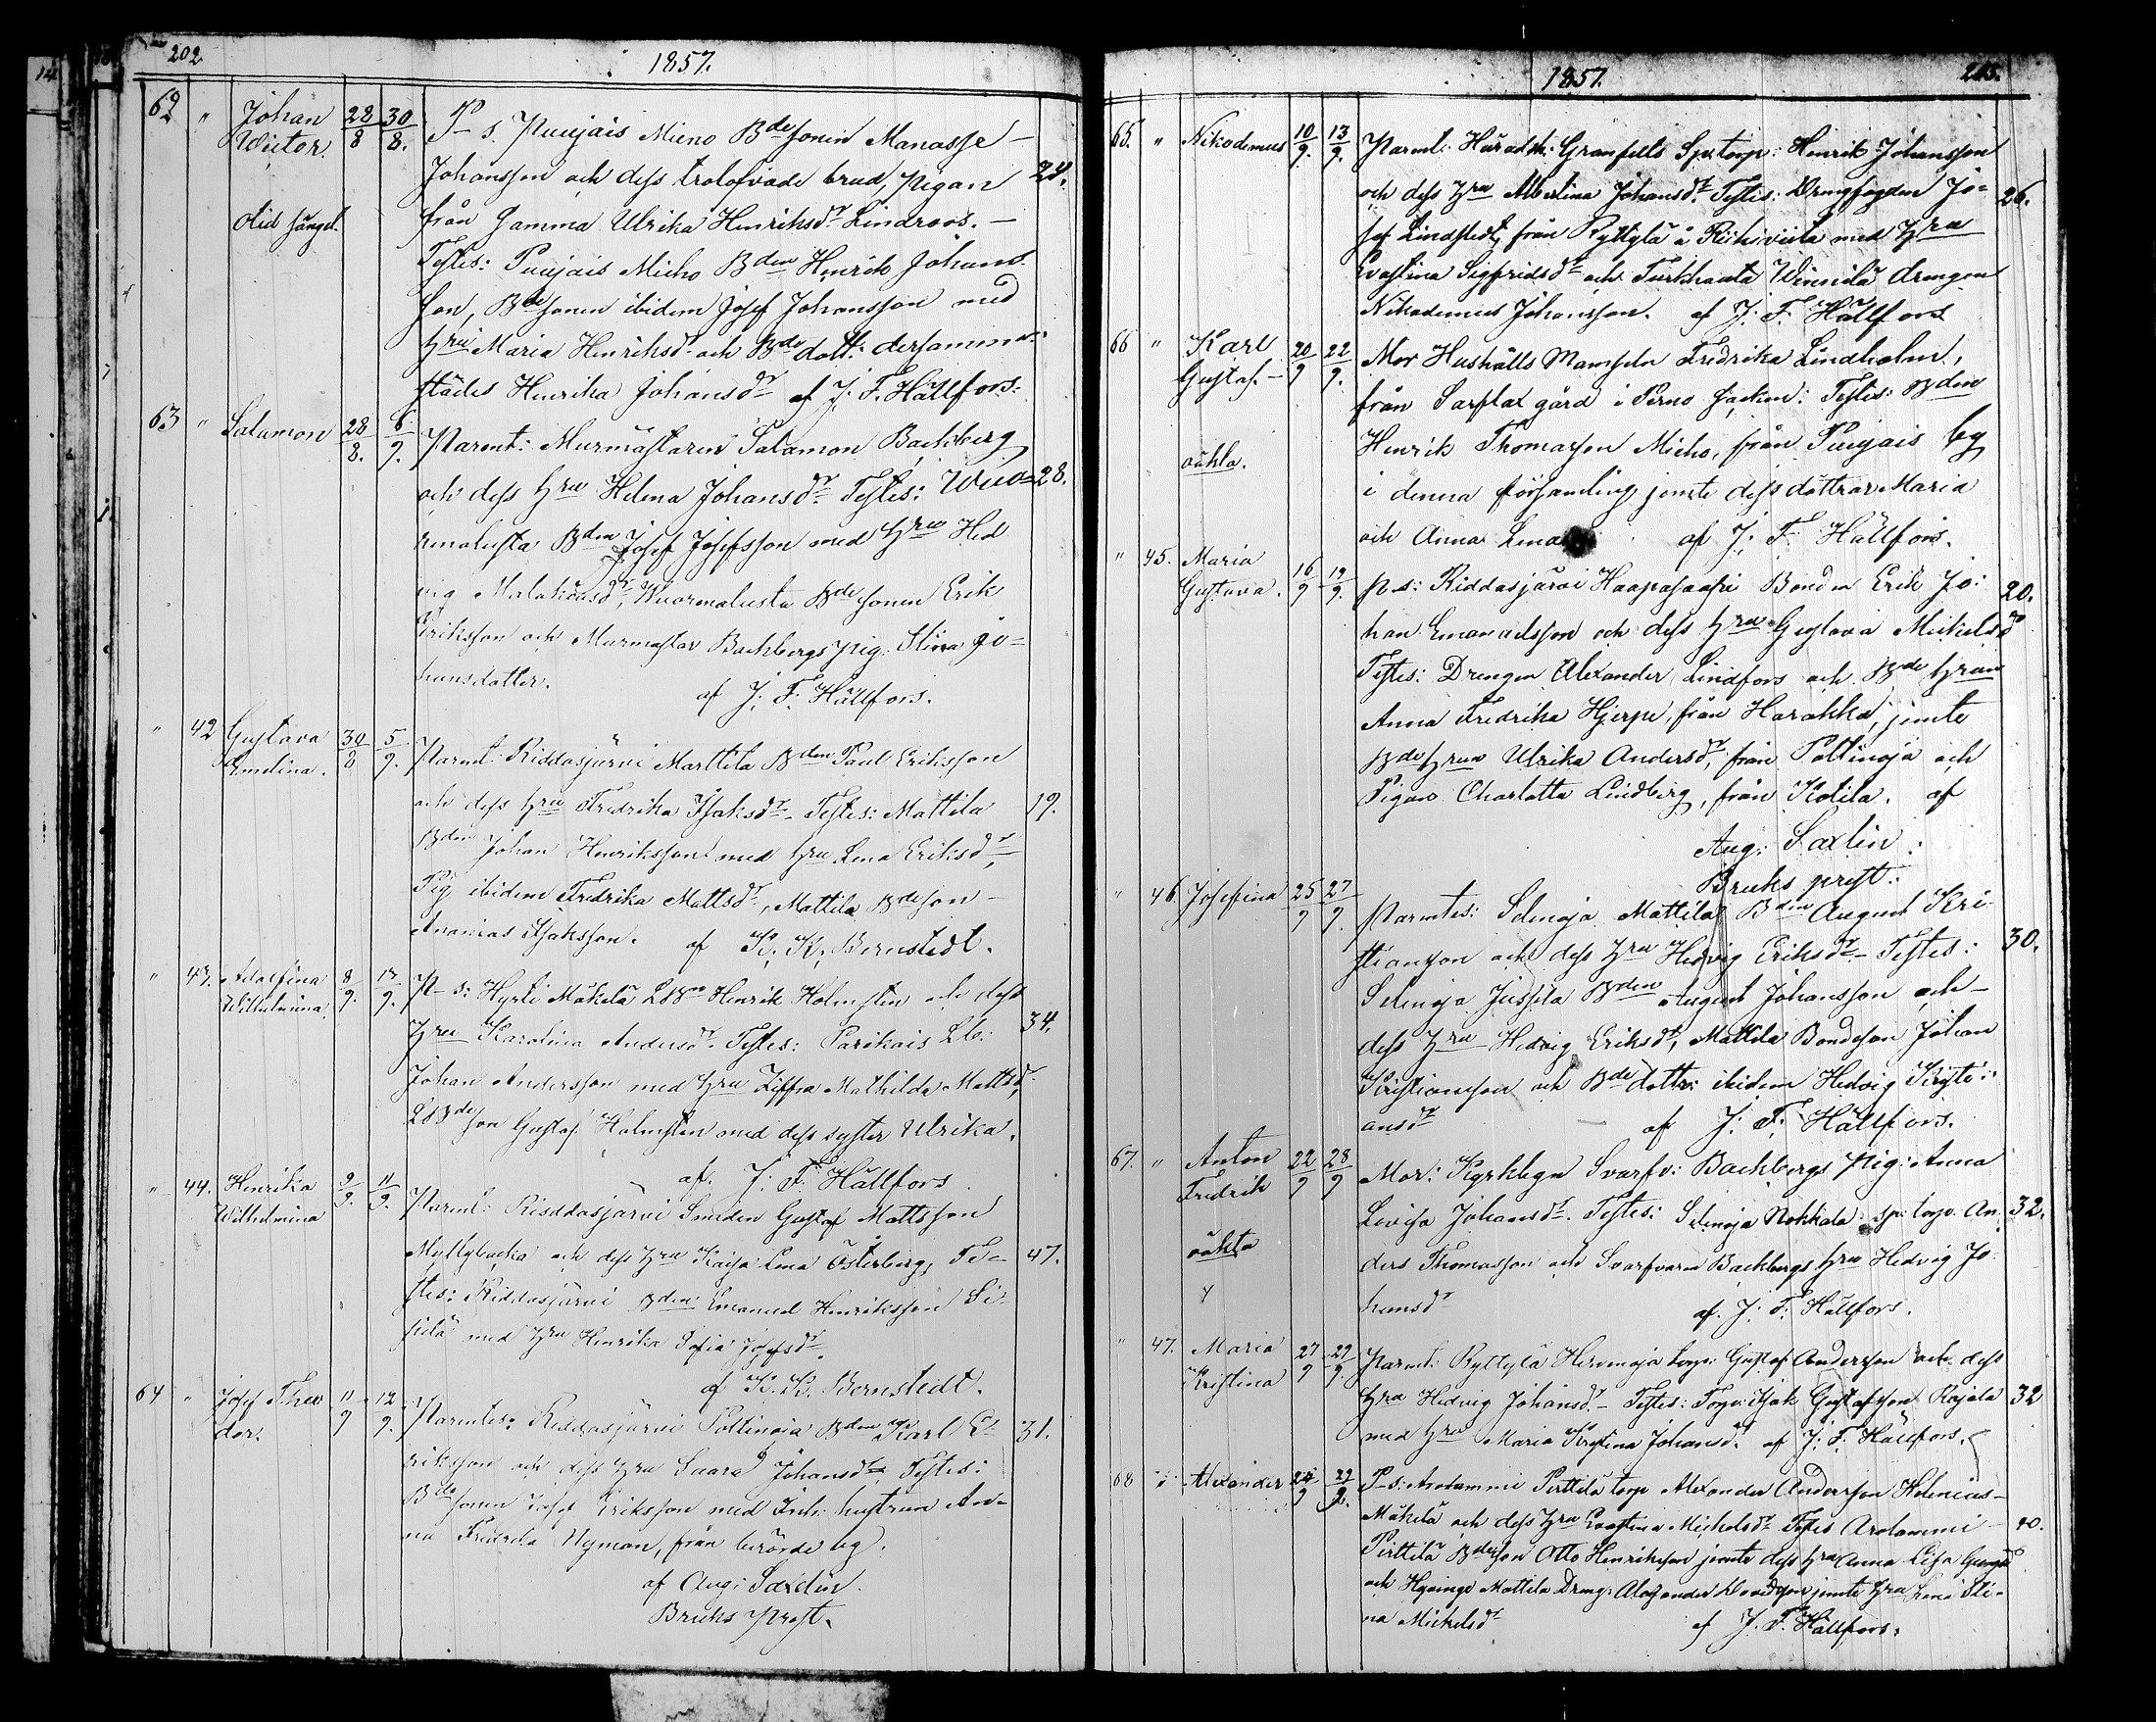 202
1857.
62 " Johan 28/8 30/8. P s. Puujais Mieno Bdesonen Manasse
Wictor. Johansson och dess trolofvade brud, Pigan 24.
Olid sängel. från Gamma Ulrika Henriksdr Lindroos.
Testes: Puujais Micho Bden Henrik Johans
son, Bdesonen ibidem Josef Johansson med
hru Maria Henriksdr och Bde dott: dersamma-
städes Henrika Johansdr af J. F. Hällfors.
63 " Salamon 28/8. 6/9. Parent: Murmästaren Salamon Backberg
och dess hru Helena Johansdr Testes: Wuo= 28.
renalusta Bden Josef Josefsson med hru Hed
vig Malakiasdr, Wuorenalusta Bdesonen Erik
Eriksson och Murmästar Backbergs pig. Stina Jo=
hansdotter. af J. F. Hällfors.
" 42 Gustava 30/8 5/9. Parent: Riddasjärvi Marttila Bden Paul Eriksson
Emelina. och dess hru Fredrika Isaksdr Testes: Mattila 19.
Bden Johan Henriksson med hru Lena Eriksdr,
Pig ibidem Fredrika Mattsdr, Mattila Bdeson
Ananias Isaksson. af K. K. Bernstedt.
" 43. Adolfina 8/9. 13/9. P s: Hyrli Mäkelä LBn Henrik Holmsten och dess
Wilhelmina. Hru Karolina Andersdr. Testes: Parikais Lb: 34.
Johan Andersson med hru Ziffra Mathilda Mattsdr,
LBdeson Gustaf Holmsten med dess syster Ulrika.
af. J. F. Hällfors
" 44. Henrika 9/9. 11/9. Parent: Riddasjärvi Smeden Gustaf Mattsson
Wilhelmina Myllybacka och dess hru Kaisa Lena Österberg, Te= 47.
stes: Riddasjärvi Bden Emanuel Henriksson Si
pilä med hru Henrika Sofia Josefsdr.
af K. K. Bernstedt.
64 " Josef Theo 11/9 12/9. Parentes: Riddasjärvi Pottinoja Bden Karl E= 31.
dor. riksson och dess hru Saara Johansdr Testes:
Bdesonen Josef Eriksson med Inh. hustrun An=
na Fredrika Nyman, från berörde by.
af Aug: Saxlin.
Bruks Prest.
1857. 203.
65. " Nikodemus 10/9. 13/9. Parent: Häradsh: Granfelts Sp. torp: Henrik Johansson
och dess hru Albertina Johansdr. Testes: Drengfogden Jo= 26.
sef Lindstedt, från Ryttylä å Rühiviita med hru
Evastina Sigfridsdr och Turkhauta Winnilä drengen
Nikodemus Johansson. af J. F. Hällfors
66 " Karl 20/9 22/9. Mor Hushålls Mamseln Fredrika Lindholm,
Gustaf. från Sarflax gård i Perno Socken: Testes: Bden
Henrik Thomasson Micho, från Puujais by
oäkta. i denna församling jemte dess döttrar Maria
och Anna Lena af J. F. Hällfors.
" 45. Maria 16/9 19/9. P s: Riddasjärvi Haapasaari Bonden Erik Jo: 20.
Gustava. han Emanuelsson och dess hru Gustava Mickelsdr
Testes: Drengen Alexander Lindfors och Bde hrun
Anna Fredrika Hjerpe, från Harakka, jemte
Bde hrun Ulrika Andersdr, från Pottinoja och
Pigan Charlotta Lindberg, från Kotila. af
Aug: Saxlin.
Bruks prest.
" 46. Josefina 25/9 27/9. Parentes: Selinoja Mattila Bden August Kri
stiansson och dess hru Hedvig Eriksdr Testes: 30.
Selinoja Jussila Bden August Johansson och
dess hru Hedvig Eriksdr, Mattila Bondeson Johan
Kristiansson och Bde dottr: ibidem Hedvig Kristi:
ansdr af J. F. Hällfors.
67. " Anton 22/9 28/9 Mor: Kyrkbyn Svarfv: Backbergs Pig: Anna
Fredrik Lovisa Johansdr. Testes: Selinoja Nokkala sp: torp. An 32.
oäkta ders Thomasson och Svarfvaren Backbergs hru Hedvig Jo
hansdr af. J. F. Hällfors.
" 47. Maria 27/9 29/9. Parent: Ryttylä Hirvioja torp: Gustaf Andersson och dess
Kristina hru Hedvig Johansdr. Testes: Torp. Isak Gustafsson Rajala 32
med hru Maria Kristina Johansdr. af J. F. Hällfors.
68 " Alexander 24/9 29/9. P s: Arolammi Perttilä torp Alexander Andersson Helenius
Mäkelä och dess hru Evastina Michelsdr Testes Arolammi 40.
Pirttilä Bdeson Otto Henriksson jemte dess hru Anna Lisa
och Hyvinge Mattila Dreng: Alexander Davidsson jemte hru Lena Sti=
na Michelsdr af J. F. Hällfors.